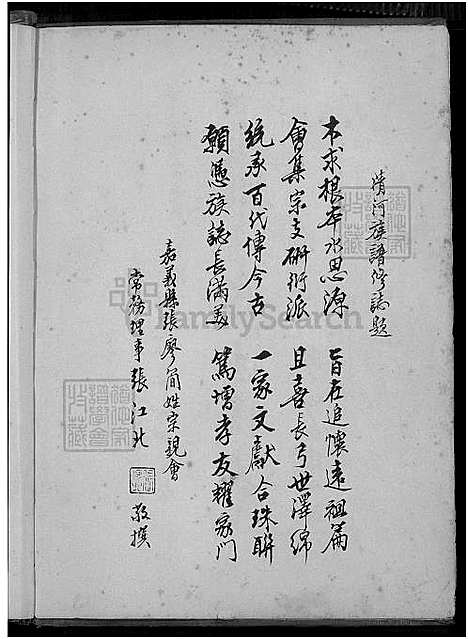 清河族譜修誌題
木求根本水思源 旨在追懷遠祖篇
會集宗文研衍派 且喜長弓世澤綿
統承百代傳今古 一家文獻合珠聯
願憑族誌長滿美 篤增孝友耀家門
嘉義縣張廖簡姓宗親會
常務理事張江北 敬撰
FamilySearch